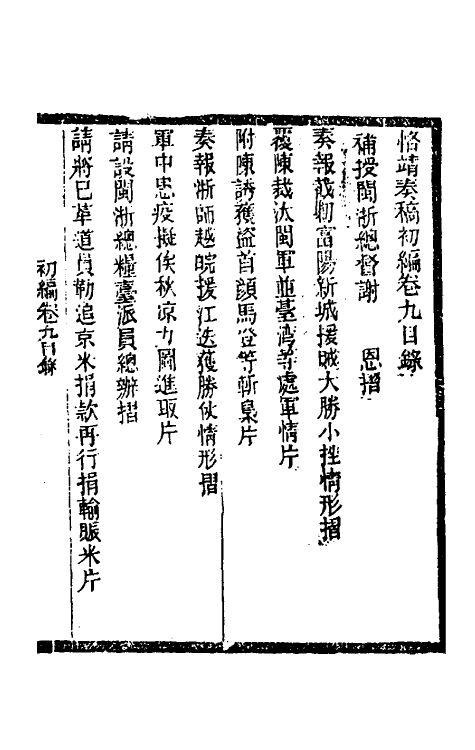 恪靖奏稿初編卷九目錄
補授閩浙總督謝　恩摺
奏報截剿富陽新城援賊大勝小挫情形摺
覆陳裁汰閩軍並臺灣等處軍情片
附陳誘獲盜首顏馬登等斬梟片
奏報浙師越皖援江迭獲勝仗情形摺
軍中患疫擬俟秋凉力圖進取片
請設閩浙總糧臺派員總辦摺
請將已革道員勒追京米捐款再行捐輸賑米片
初編卷九目錄